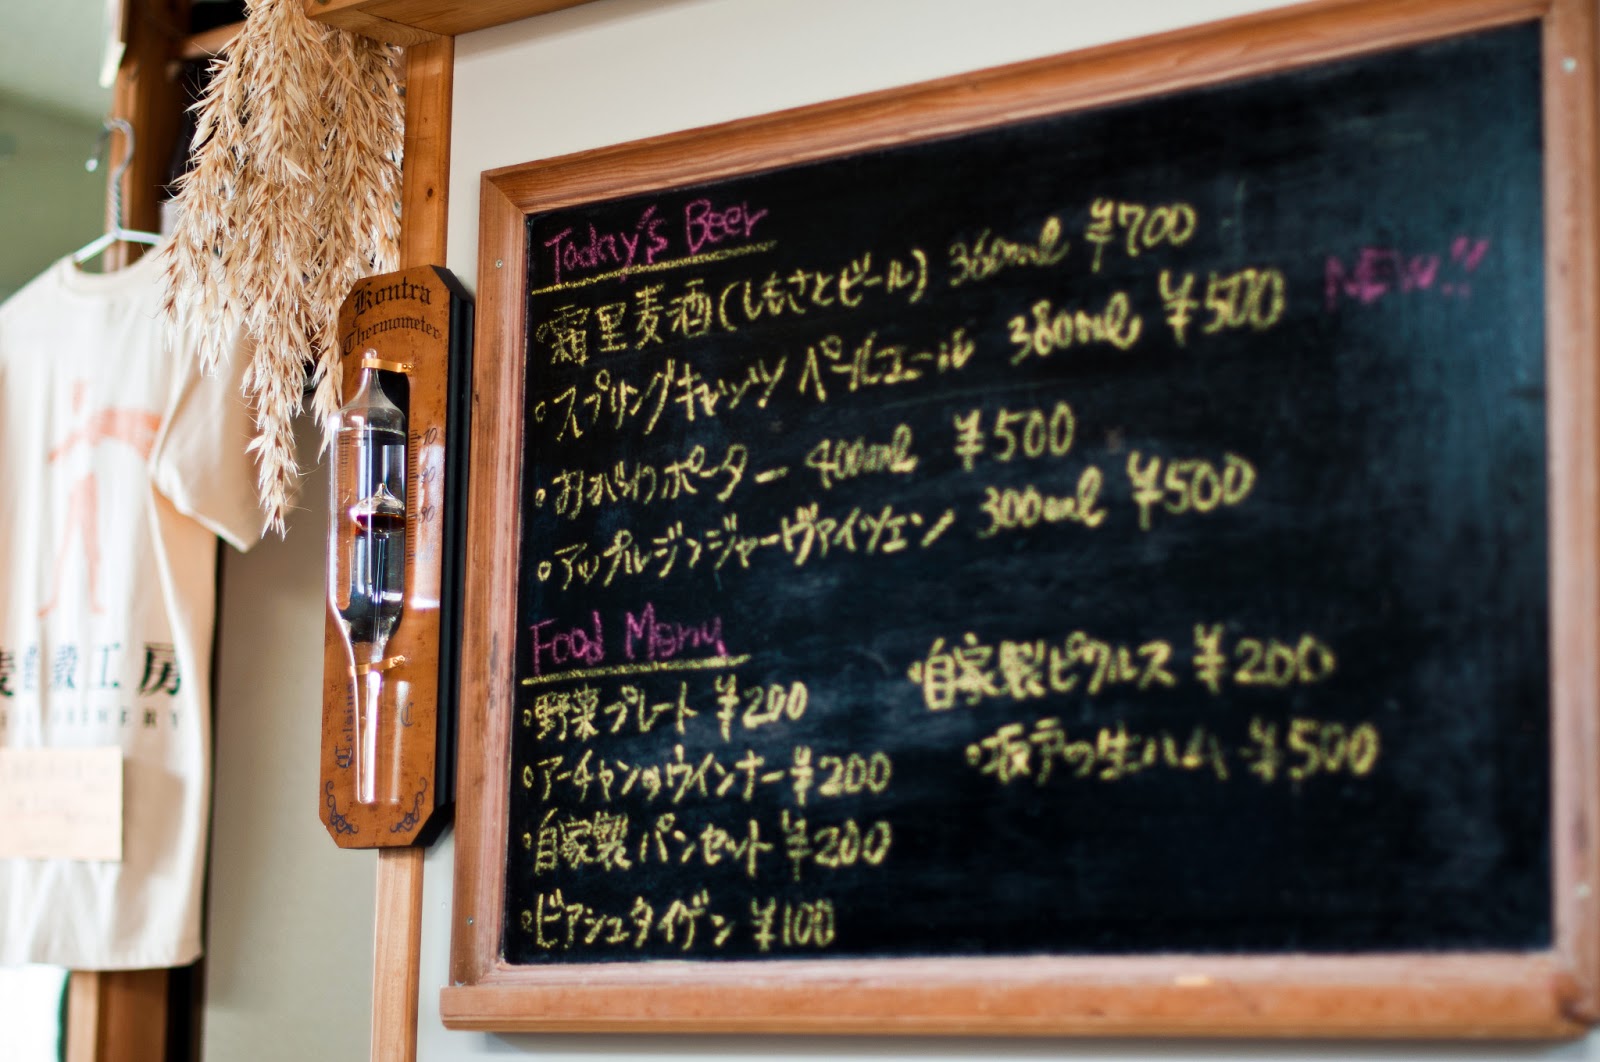 Kontra
Thermometer
10
Celsius
°C
工房
Today's Beer
霜里麦酒(しもさとビール) 360ml ¥700
スプリングキャッツ ペールエール 380ml ¥500 NEW!!
おがわポーター 400ml ¥500
アップルジンジャーヴァイツェン 300ml ¥500
Food Menu
野菜プレート ¥200
アーチャンのウインナー ¥200
自家製パンセット ¥200
ビアシュタイゲン ¥100
自家製ピクルス ¥200
の生ハム ¥500